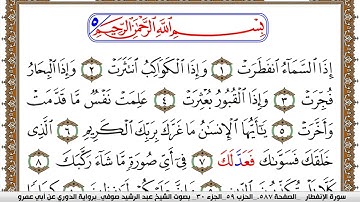 بِسْمِ اللَّهِ الرَّحْمَٰنِ الرَّحِيمِ
إِذَا السَّمَاءُ انفَطَرَتْ ١ وَإِذَا الْكَوَاكِبُ انتَثَرَتْ ٢ وَإِذَا الْبِحَارُ
فُجِّرَتْ ٣ وَإِذَا الْقُبُورُ بُعْثِرَتْ ٤ عَلِمَتْ نَفْسٌ مَّا قَدَّمَتْ
وَأَخَّرَتْ ٥ يَٰأَيُّهَا الْإِنسَٰنُ مَا غَرَّكَ بِرَبِّكَ الْكَرِيمِ ٦ الَّذِي
خَلَقَكَ فَسَوَّىٰكَ فَعَدَّلَكَ ٧ فِي أَيِّ صُورَةٍ مَّا شَاءَ رَكَّبَكَ ٨
سورة الإنفطار - الصفحة ٥٨٧. الحزب ٥٩. الجزء ٣٠. بصوت الشيخ عبد الرشيد صوفي برواية الدوري عن أبي عمرو